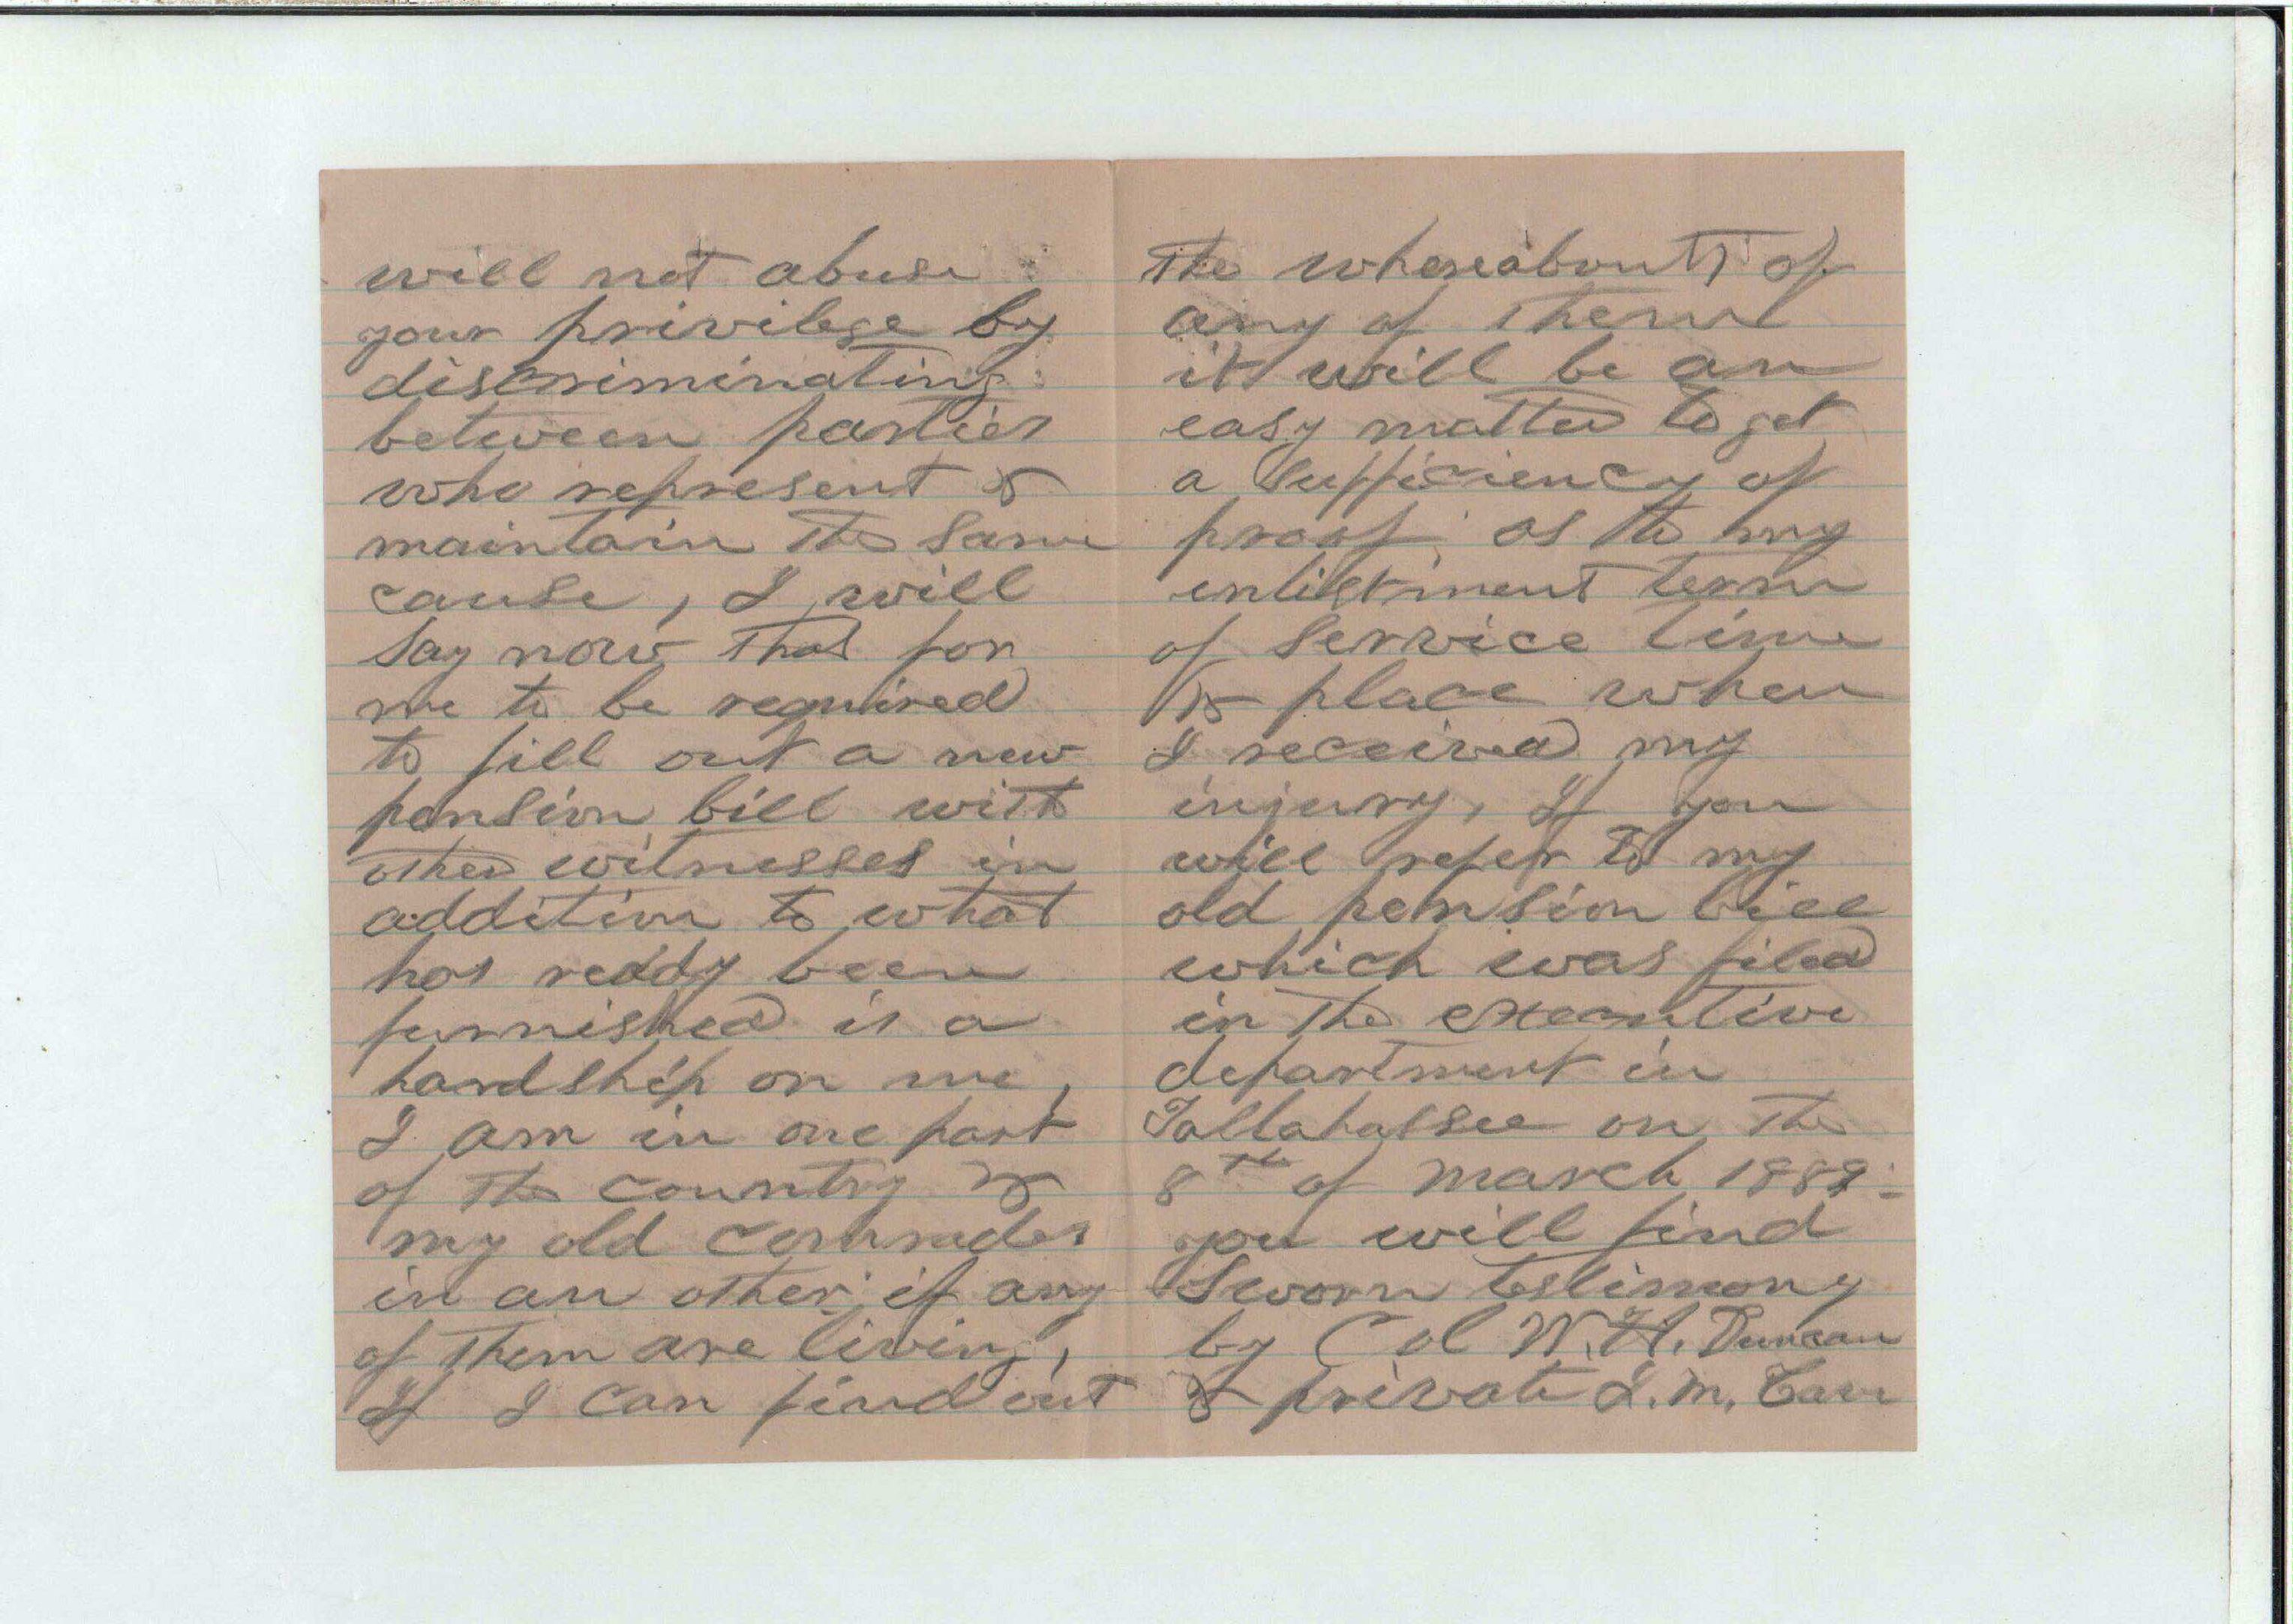 will not abuse
your privilege by
discriminating
between parties
who represent &
maintain the same
cause, I will
say now that for
me to be required
to fill out a new
pension bill with
other witnesses in
addition to what
has reddy been
furnished is a
hardship on me,
I am in one part
of the country &
my old comrades
in an other, if any
of them are living,
If I can find out
the whereabouts of
any of them
it will be an
easy matter to get
a sufficiency of
proof as to my
enlistment term
of service time
& place when
I received my
injury, If you
will refer to my
old pension bill
which was filed
in the executive
department in
Tallahassee on the
8th of March 1888
you will find
sworn testimony
by Col W. H. Duncan
& private L. M.